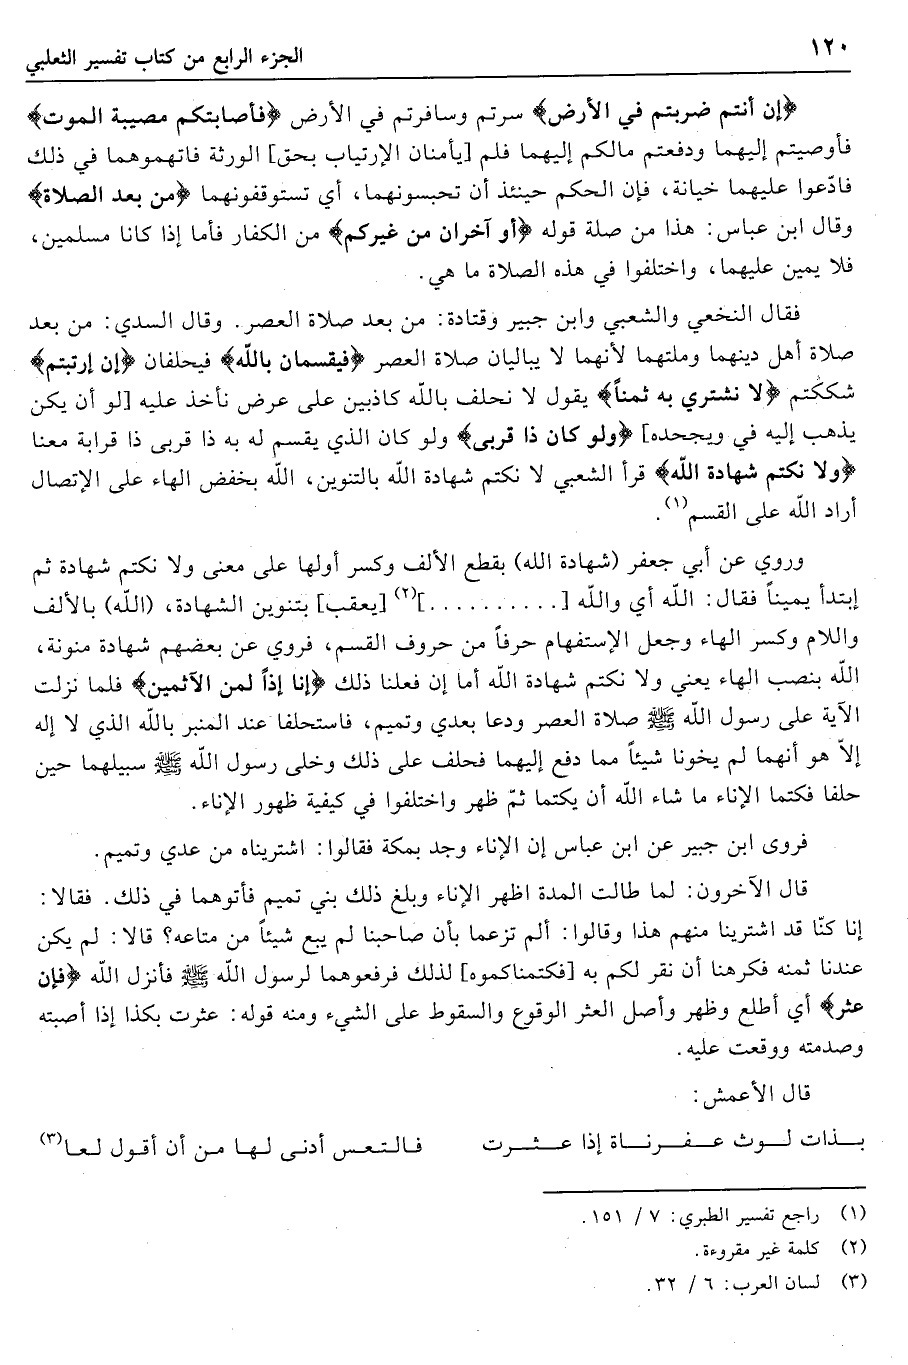 ١٢٠
الجزء الرابع من كتاب تفسير الثعلبي
﴿إن أنتم ضربتم في الأرض﴾ سرتم وسافرتم في الأرض ﴿فأصابتكم مصيبة الموت﴾
فأوصيتم إليهما ودفعتم مالكم إليهما فلم [يأمنان الإرتياب بحق] الورثة فاتهموهما في ذلك
فادّعوا عليهما خيانة، فإن الحكم حينئذ أن تحبسونهما، أي تستوقفونهما ﴿من بعد الصلاة﴾
وقال ابن عباس: هذا من صلة قوله ﴿أو آخران من غيركم﴾ من الكفار فأما إذا كانا مسلمين،
فلا يمين عليهما، واختلفوا في هذه الصلاة ما هي.
فقال النخعي والشعبي وابن جبير وقتادة: من بعد صلاة العصر. وقال السدي: من بعد
صلاة أهل دينهما وملتهما لأنهما لا يباليان صلاة العصر ﴿فيقسمان بالله﴾ فيحلفان ﴿إن إرتبتم﴾
شككتم ﴿لا نشتري به ثمناً﴾ يقول لا نحلف بالله كاذبين على عرض نأخذ عليه [لو أن يكن
يذهب إليه في ويجحده] ﴿ولو كان ذا قربى﴾ ولو كان الذي يقسم له به ذا قربى ذا قرابة معنا
﴿ولا نكتم شهادة الله﴾ قرأ الشعبي لا نكتم شهادة الله بالتنوين، الله بخفض الهاء على الإتصال
أراد الله على القسم(١).
وروي عن أبي جعفر (شهادة الله) بقطع الألف وكسر أولها على معنى ولا نكتم شهادة ثم
إبتدأ يميناً فقال: الله أي والله [..........](٢) [يعقب] بتنوين الشهادة، (الله) بالألف
واللام وكسر الهاء وجعل الإستفهام حرفاً من حروف القسم، فروي عن بعضهم شهادة منونة،
الله بنصب الهاء يعني ولا نكتم شهادة الله أما إن فعلنا ذلك ﴿إنا إذاً لمن الآثمين﴾ فلما نزلت
الآية على رسول الله ﷺ صلاة العصر ودعا بعدي وتميم، فاستحلفا عند المنبر بالله الذي لا إله
إلاّ هو أنهما لم يخونا شيئاً مما دفع إليهما فحلف على ذلك وخلى رسول الله ﷺ سبيلهما حين
حلفا فكتما الإناء ما شاء الله أن يكتما ثمّ ظهر واختلفوا في كيفية ظهور الإناء.
فروى ابن جبير عن ابن عباس إن الإناء وجد بمكة فقالوا: اشتريناه من عدي وتميم.
قال الآخرون: لما طالت المدة اظهر الإناء وبلغ ذلك بني تميم فأتوهما في ذلك. فقالا:
إنا كنّا قد اشترينا منهم هذا وقالوا: ألم تزعما بأن صاحبنا لم يبع شيئاً من متاعه؟ قالا: لم يكن
عندنا ثمنه فكرهنا أن نقر لكم به [فكتمناكموه] لذلك فرفعوهما لرسول الله ﷺ فأنزل الله ﴿فإن
عثر﴾ أي أطلع وظهر وأصل العثر الوقوع والسقوط على الشيء ومنه قوله: عثرت بكذا إذا أصبته
وصدمته ووقعت عليه.
قال الأعمش:
بـذات لـوث عـفـرنـاة إذا عـثـرت فـالـتـعـس أدنـى لـهـا مـن أن أقـول لـعـا(٣)
(١) راجع تفسير الطبري: ٧ / ١٥١.
(٢) كلمة غير مقروءة.
(٣) لسان العرب: ٦ / ٣٢.